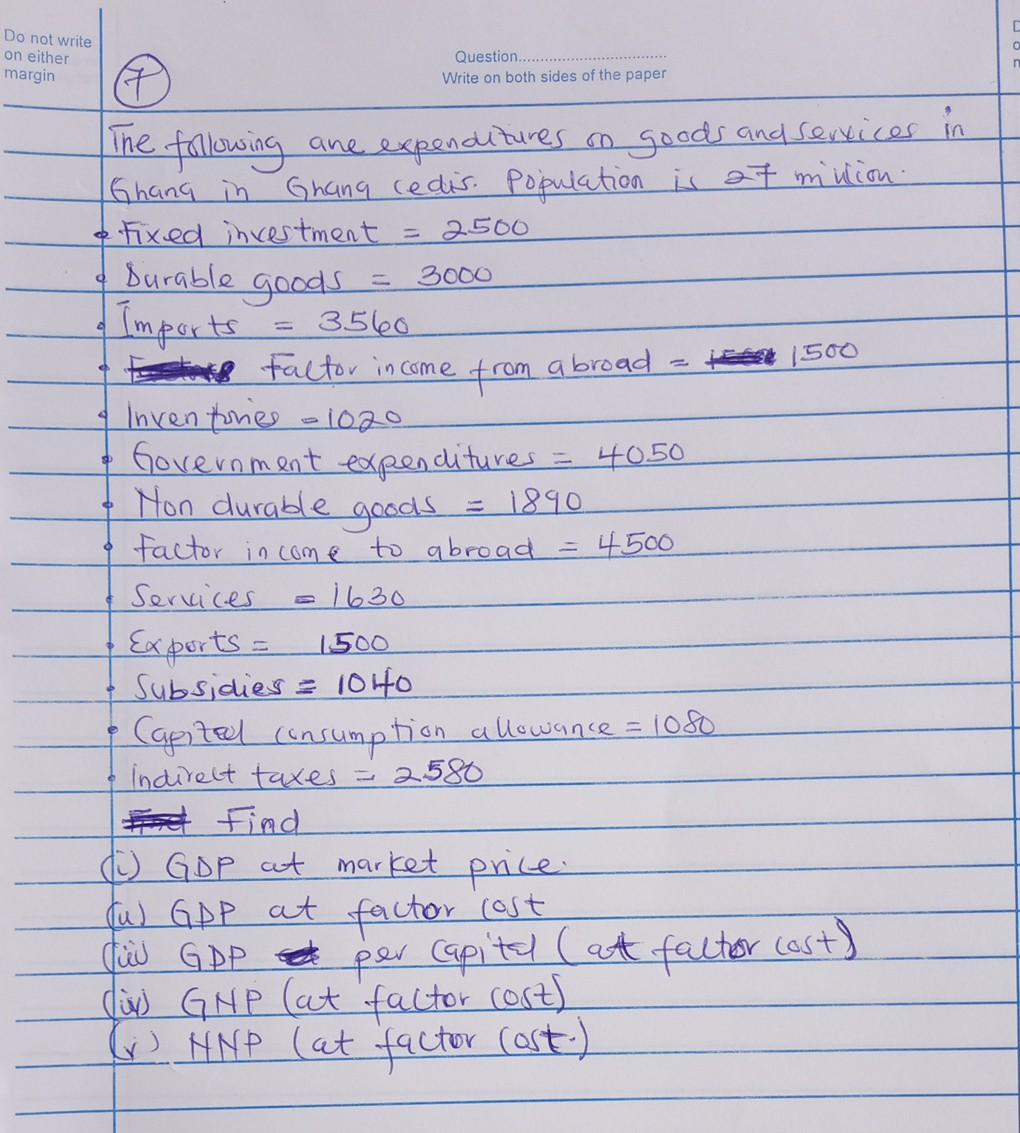 Do not write
on either
margin
Question..................................
Write on both sides of the paper
7
The following are expenditures on goods and services in
Ghana in Ghana cedis. Population is 27 million.
• Fixed investment = 2500
• Durable goods = 3000
• Imports = 3560
• Factor income from abroad = 1500
• Inventories = 1020
• Government expenditures = 4050
• Non durable goods = 1890
• Factor income to abroad = 4500
• Services = 1630
• Exports = 1500
• Subsidies = 1040
• Capital consumption allowance = 1080
• Indirect taxes = 2580
Find
(i) GDP at market price.
(ii) GDP at factor cost
(iii) GDP per capital (at factor cost)
(iv) GNP (at factor cost)
(v) NNP (at factor cost.)